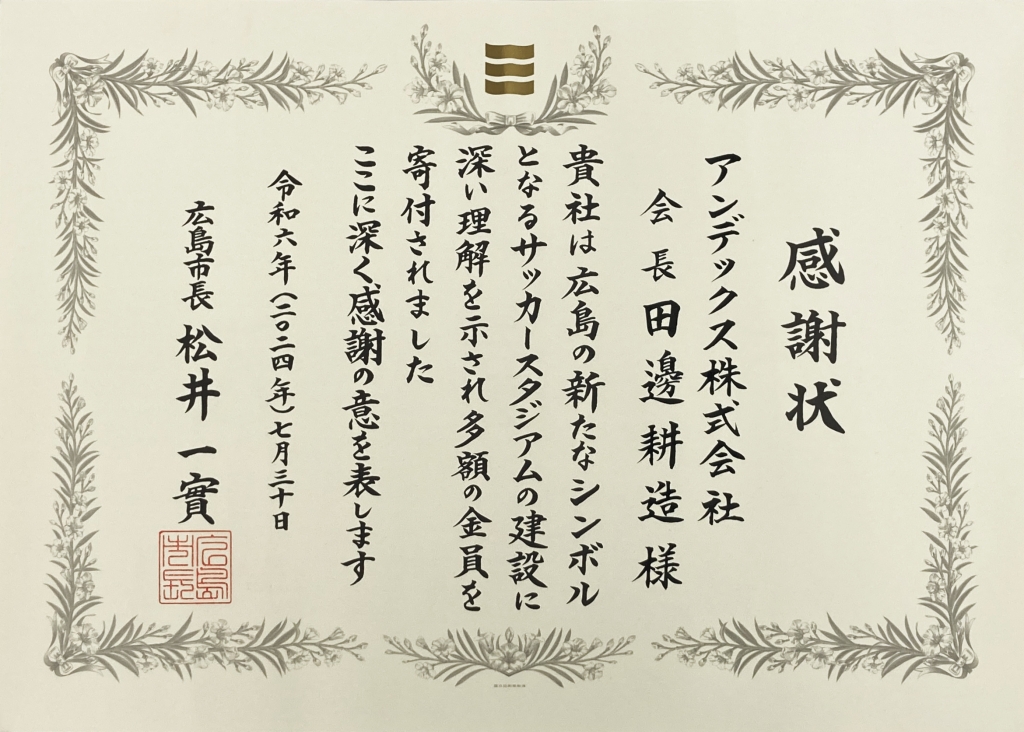 感謝状
アンデックス株式会社
会長 田邊耕造 様
貴社は広島の新たなシンボル
となるサッカースタジアムの建設に
深い理解を示され多額の金員を
寄付されました
ここに深く感謝の意を表します
令和六年(二〇二四年)七月三十日
広島市長 松井一實
広島
市長